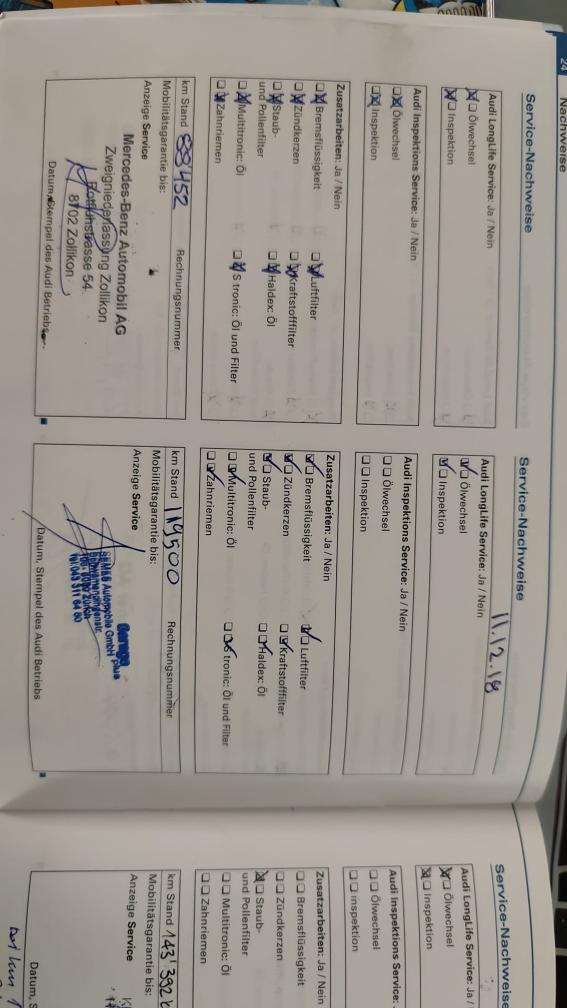 24
Nachweise
Service-Nachweise
Audi LongLife Service: Ja / Nein
Ölwechsel
Inspektion
Audi Inspektions Service: Ja / Nein
Ölwechsel
Inspektion
Zusatzarbeiten: Ja / Nein
Bremsflüssigkeit
Luftfilter
Zündkerzen
Kraftstofffilter
Staub-
und Pollenfilter
Haldex: Öl
Multitronic: Öl
S tronic: Öl und Filter
Zahnriemen
km Stand 88452
Rechnungsnummer
Mobilitätsgarantie bis:
Anzeige Service
Mercedes-Benz Automobil AG
Zweigniederlassung Zollikon
54
8702 Zollikon
Datum, Stempel des Audi Betriebs
Service-Nachweise
11.12.18
Audi LongLife Service: Ja / Nein
Ölwechsel
Inspektion
Audi Inspektions Service: Ja / Nein
Ölwechsel
Inspektion
Zusatzarbeiten: Ja / Nein
Bremsflüssigkeit
Luftfilter
Zündkerzen
Kraftstofffilter
Staub-
und Pollenfilter
Haldex: Öl
Multitronic: Öl
tronic: Öl und Filter
Zahnriemen
km Stand 119500
Rechnungsnummer
Mobilitätsgarantie bis:
Anzeige Service
Garage
plus
Automobile GmbH
Datum, Stempel des Audi Betriebs
Service-Nachweise
Audi LongLife Service: Ja /
Ölwechsel
Inspektion
Audi Inspektions Service:
Ölwechsel
Inspektion
Zusatzarbeiten: Ja / Nein
Bremsflüssigkeit
Zündkerzen
Staub-
und Pollenfilter
Multitronic: Öl
Zahnriemen
km Stand 143'392
Mobilitätsgarantie bis:
Anzeige Service
Datum, S